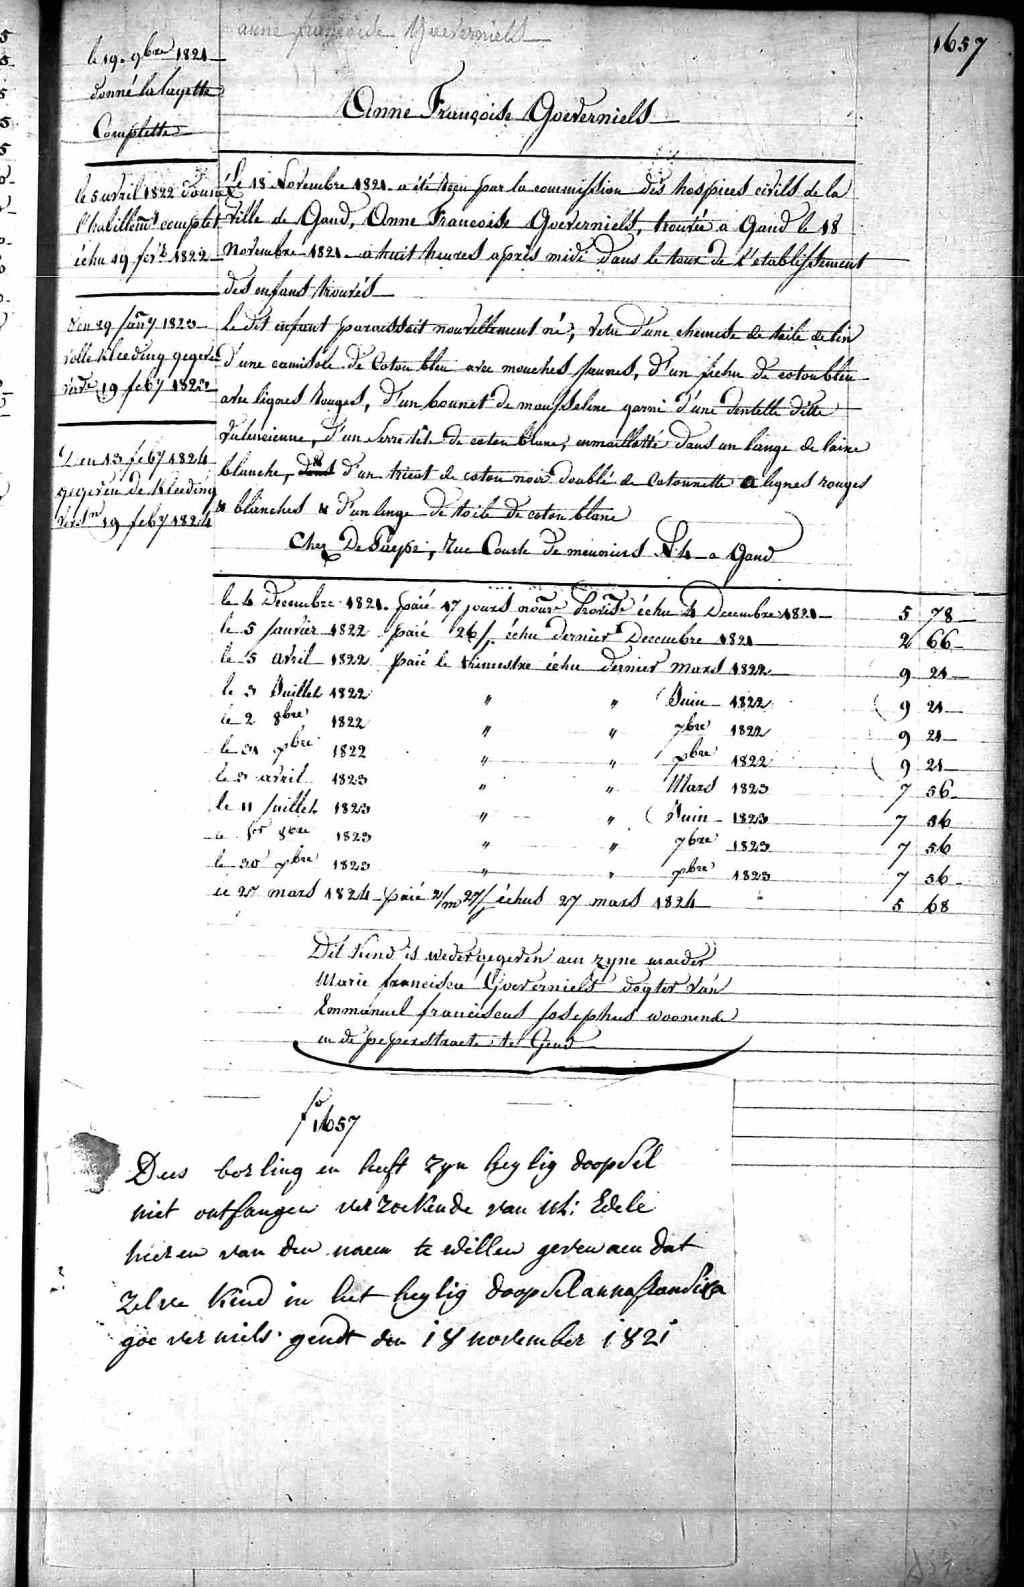 anne françoise Goeverniels
1657
le 19. 9bre 1821
donné la layette
Complette
Anne Françoise Goeverniels
le 5 avril 1822 donné
l'habillemt complet
échu 19 fevr 1822
den 29 Janry 1823
volle kleeding gegeven
verst 19 feby 1823
Den 13 feby 1824
gegeven de kleeding
verstn 19 feby 1824
Le 18 Novembre 1821. a été reçu par la commission des hospices civils de la
ville de Gand, Anne Francoise Goeverniels, trouvée a Gand le 18
Novembre 1821. a huit heures après midi dans le tour de l'etablissement
des enfans trouvés
Le dit enfant paraissait nouvellement né, vetu d'une chemise de toile de lin
d'une camisole de coton bleu avec mouches jaunes, d'un fichu de coton bleu
avec lignes rouges, d'un bonnet de mousseline garni d'une dentelle dite
valencienne, d'un serre tête de coton blanc, enmaillotté dans un lange de laine
blanche, d'un tricot de coton noir doublé de cotonnette a lignes rouges
& blanches & d'un linge de toile de coton blanc
Chez De Paepe, Rue Courte de meuniers N 4 a Gand
le 4 Decembre 1821. paié 17 jours nourre Provisre échu 4 Decembre 1821 5 78
le 5 Janvier 1822 paié 26/j échu dernier Decembre 1821 2 66
le 5 avril 1822 paié le trimestre échu dernier mars 1822 9 21
le 3 Juillet 1822 " " Juin 1822 9 21
le 2 8bre 1822 " " 7bre 1822 9 21
le 31 xbre 1822 " " xbre 1822 9 21
le 3 avril 1823 " " Mars 1823 7 56
le 11 Juillet 1823 " " Juin 1823 7 56
le 1er 8bre 1823 " " 7bre 1823 7 56
le 30 xbre 1823 " " xbre 1823 7 56
le 27 mars 1824 paié 2/m 27/j échus 27 mars 1824 5 68
Dit kind is wedergegeven aen zyne moeder
Marie francisca Goeverniels dogter van
Emmanuel franciscus josephus woonende
in de peperstraete te Gend
fo 1657
Dees borling en heeft zyn heylig doopsel
niet ontfangen verzoekende van UL: Edele
hier en van den naem te willen geven aen dat
zelve kind in het heylig doopsel anna fransisca
goeverniels gendt den 18 november 1821